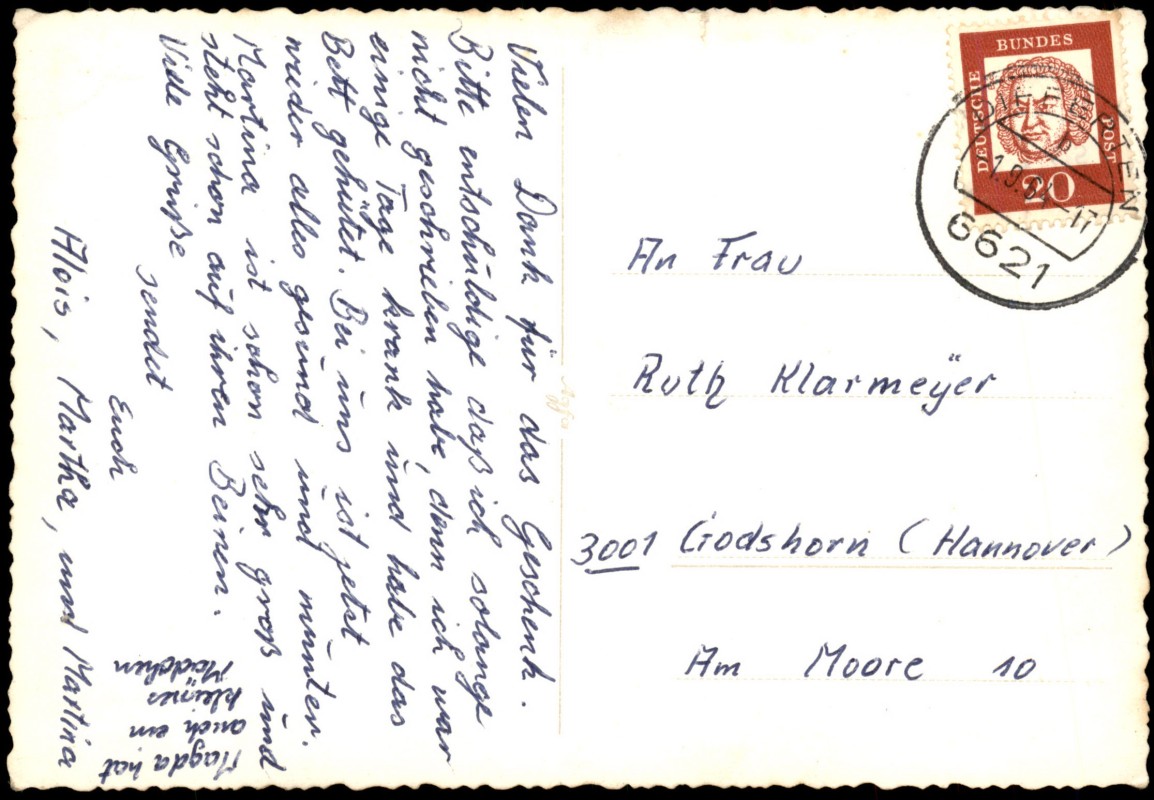 Vielen Dank für das Geschenk.
Bitte entschuldige daß ich solange
nicht geschrieben habe, denn ich war
einige Tage krank und habe das
Bett gehütet. Bei uns ist jetzt
wieder alles gesund und munter.
Martina ist schon sehr groß und
steht schon auf ihren Beinen.
Viele Grüße
sendet
Euch
Alois, Martha, und Martina
Magda hat
auch ein
kleines
Mädchen
Agfa
DEUTSCHE BUNDES POST
20
1.9.64-17
b
6621
An Frau
Ruth Klarmeÿer
3001 Godshorn (Hannover)
Am Moore 10